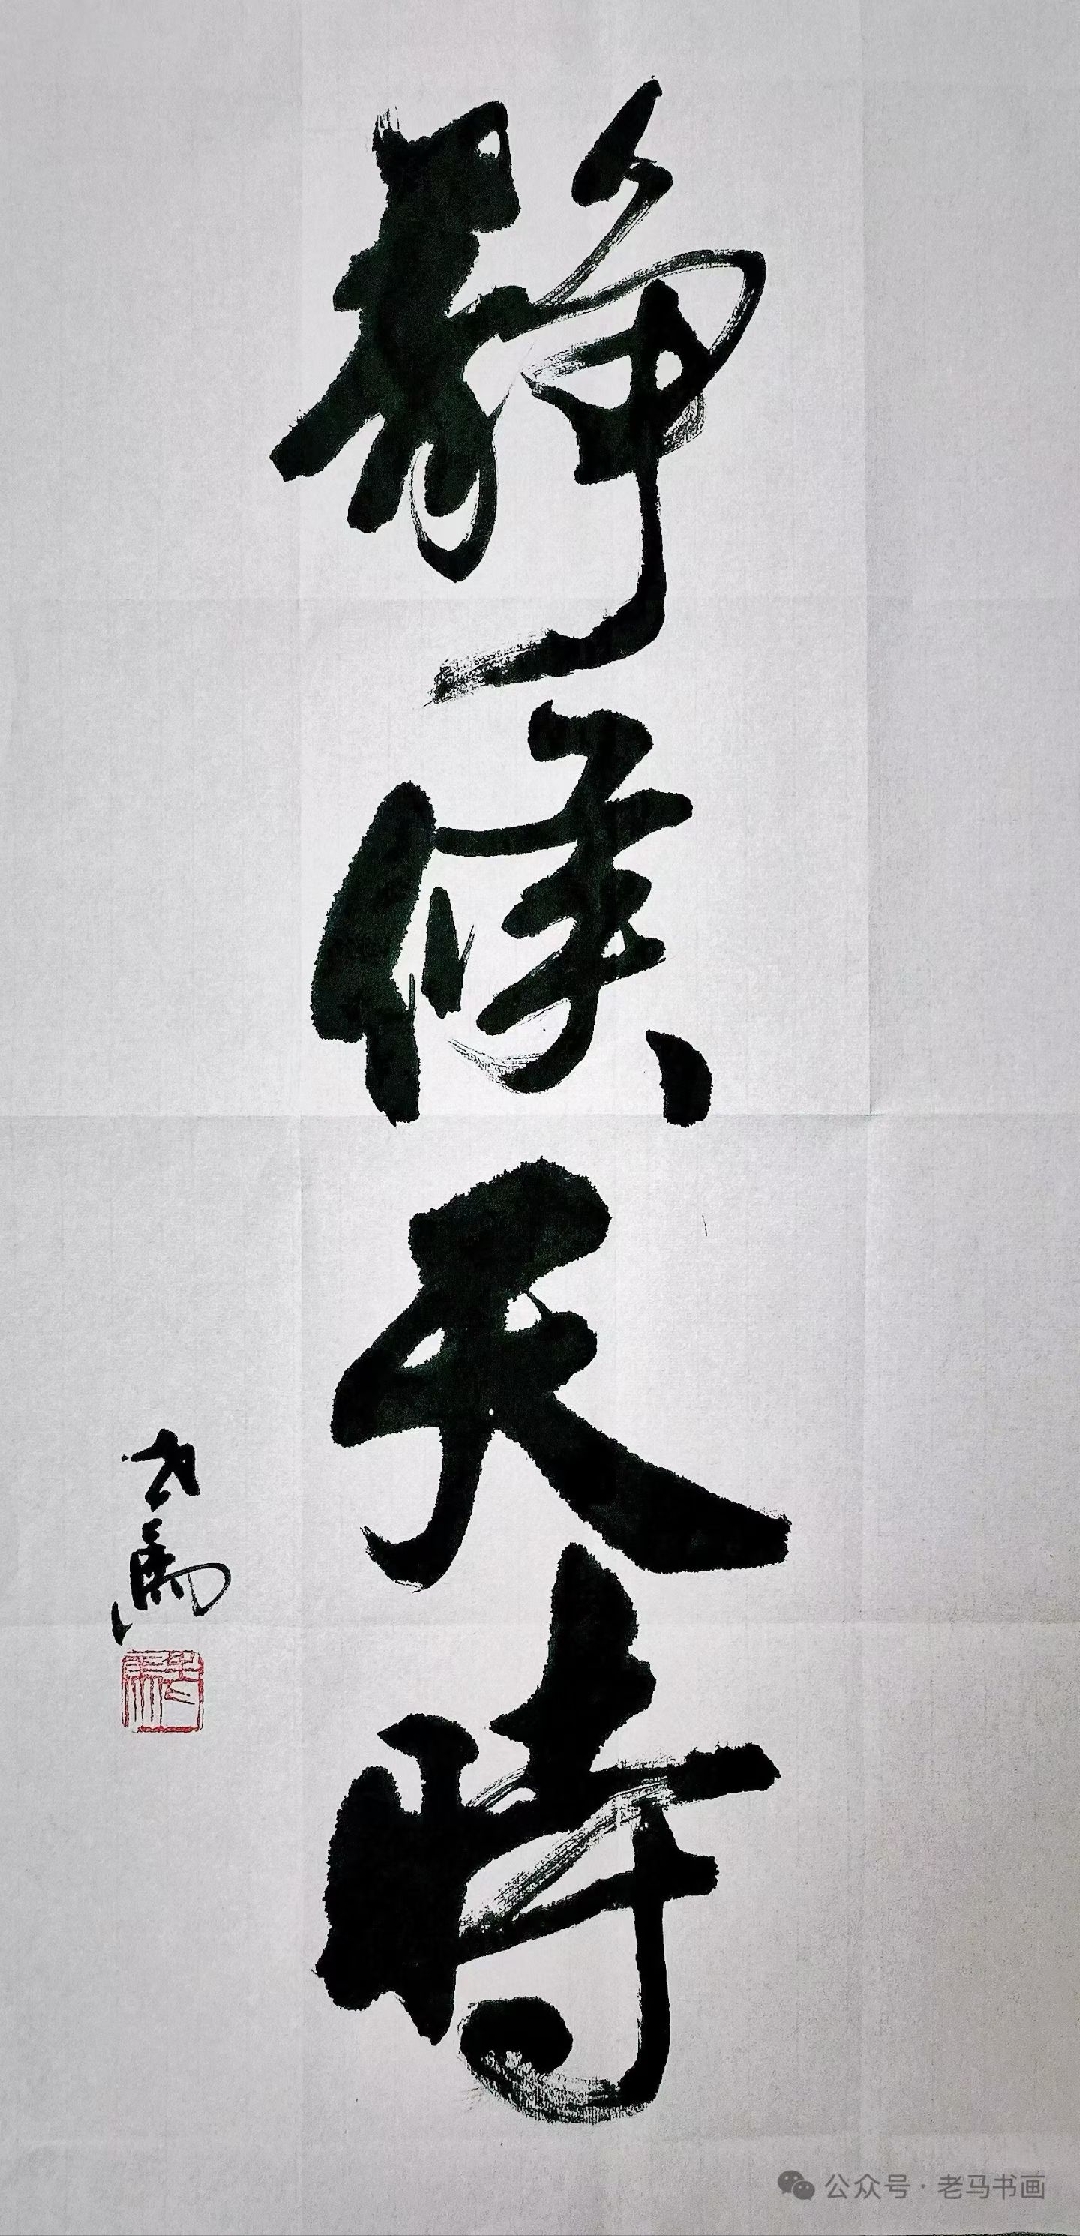 靜候天時
老馬
公众号·老马书画